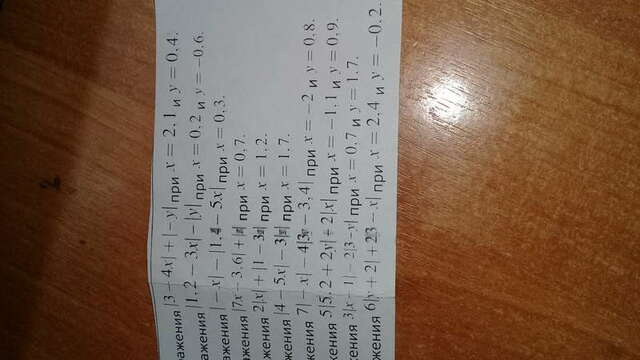 ражения |3 − 4x| + |− y| при x = 2,1 и y = 0,4.
ражения |1,2 − 3x| − |y| при x = 0,2 и y = −0,6.
ажения |− x| − |1,4 − 5x| при x = 0,3.
жения |7x − 3,6| + при x = 0,7.
жения 2|x| + |1 − 3x| при x = 1,2.
жения |4 − 5x| − 3|x| при x = 1,7.
жения 7|− x| − 4|3y − 3,4| при x = −2 и y = 0,8.
жения 5|5,2 + 2y| + 2|x| при x = −1,1 и y = 0,9.
жения 3|x − 1| − 2|3 − y| при x = 0,7 и y = 1,7.
жения 6|y + 2| + − x| при x = 2,4 и y = −0,2.